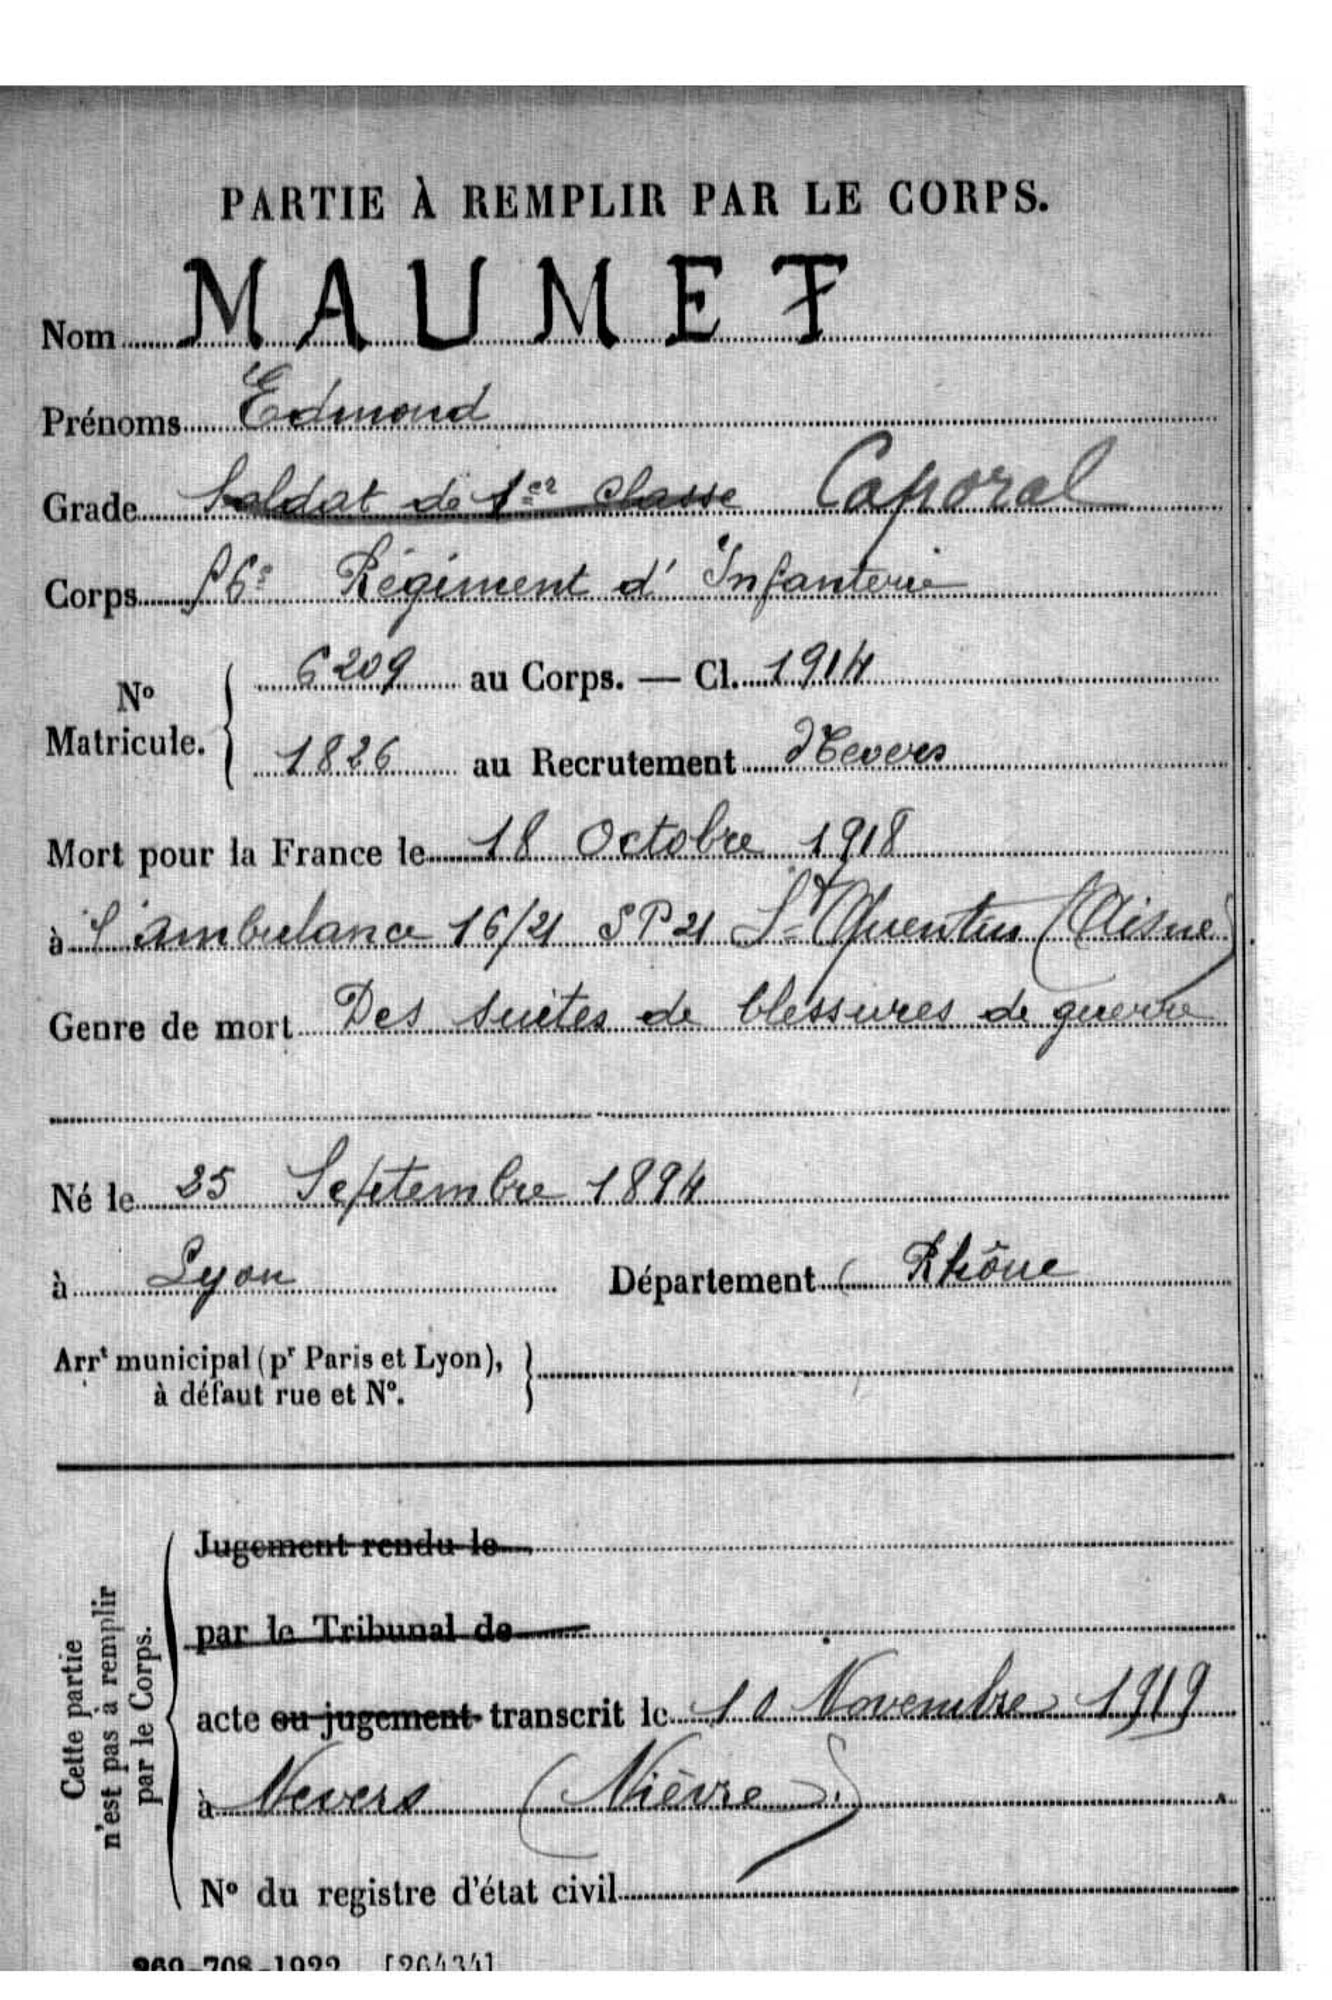 PARTIE À REMPLIR PAR LE CORPS.
Nom MAUMET
Prénoms Edmond
Grade Soldat de 1ere classe Caporal
Corps 56e Régiment d'Infanterie
N° Matricule. 6209 au Corps. — Cl. 1914
1826 au Recrutement Nevers
Mort pour la France le 18 Octobre 1918
à l'ambulance 16/21 SP 21 St Quentin (Aisne)
Genre de mort Des suites de blessures de guerre
Né le 25 Septembre 1894
à Lyon Département (Rhône
Arrt municipal (pr Paris et Lyon),
à défaut rue et N°.
Cette partie
n'est pas à remplir
par le Corps.
Jugement rendu le
par le Tribunal de
acte ou jugement transcrit le 10 Novembre 1919
à Nevers (Nièvre)
N° du registre d'état civil
269-708-1922 [26434]